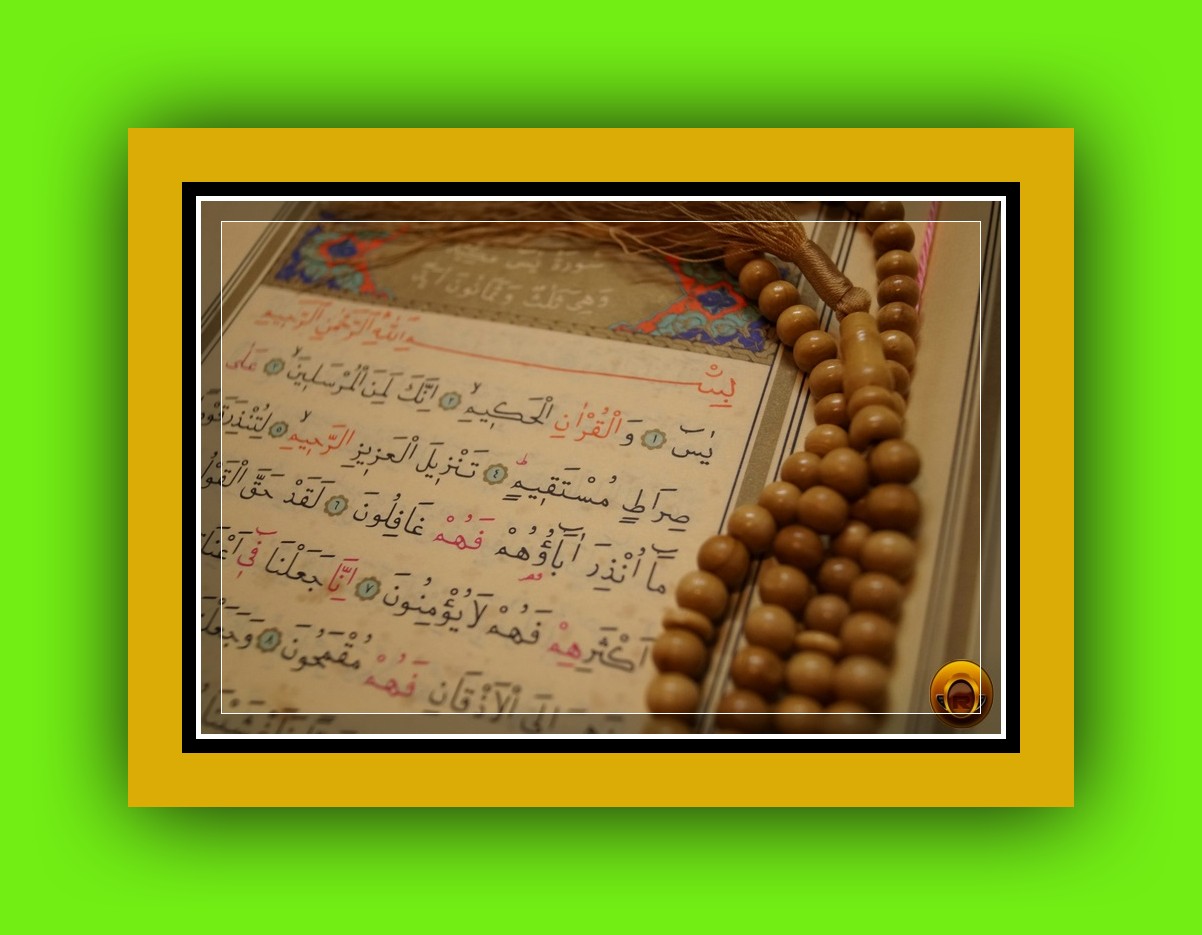 سُورَةُ يٰسٓ مَكِّيَّةٌ
وَهِيَ ثَلٰثٌ وَثَمَانُونَ اٰيَةً
بِسْــــمِ اللّٰهِ الرَّحْمٰنِ الرَّحِيمِ
يٰسٓ ١ وَالْقُرْاٰنِ الْحَكِيمِۙ ٢ اِنَّكَ لَمِنَ الْمُرْسَلِينَۙ ٣ عَلٰى
صِرَاطٍ مُسْتَقِيمٍۜ ٤ تَنْزِيلَ الْعَزِيزِ الرَّحِيمِۙ ٥ لِتُنْذِرَ قَوْمًا
مَٓا اُنْذِرَ اٰبَٓاؤُهُمْ فَهُمْ غَافِلُونَ ٦ لَقَدْ حَقَّ الْقَوْلُ
اَكْثَرِهِمْ فَهُمْ لَا يُؤْمِنُونَ ٧ اِنَّا جَعَلْنَا فٓي اَعْنَا
فَهِيَ اِلَى الْاَذْقَانِ فَهُمْ مُقْمَحُونَ ٨ وَجَعَلْنَا